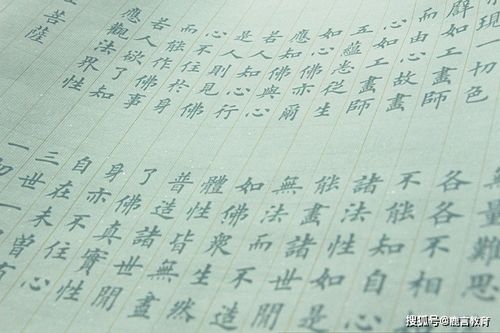 現一切色
譬如工畫師
而由心故畫
心如工畫師
五蘊悉從生
如心佛亦爾
應知佛與心
若人知心行
是人則見佛
心不住於身
而能作佛事
若人欲了知
應觀法界性
菩薩
無量難思
各各不相
不能知自心
諸法性如是
能畫諸世間
無法而不造
如佛眾生然
體性皆無盡
普造諸世間
了佛真實性
身亦不住心
自在未曾有
三世一切
一切
搜狐号@鹿言教育